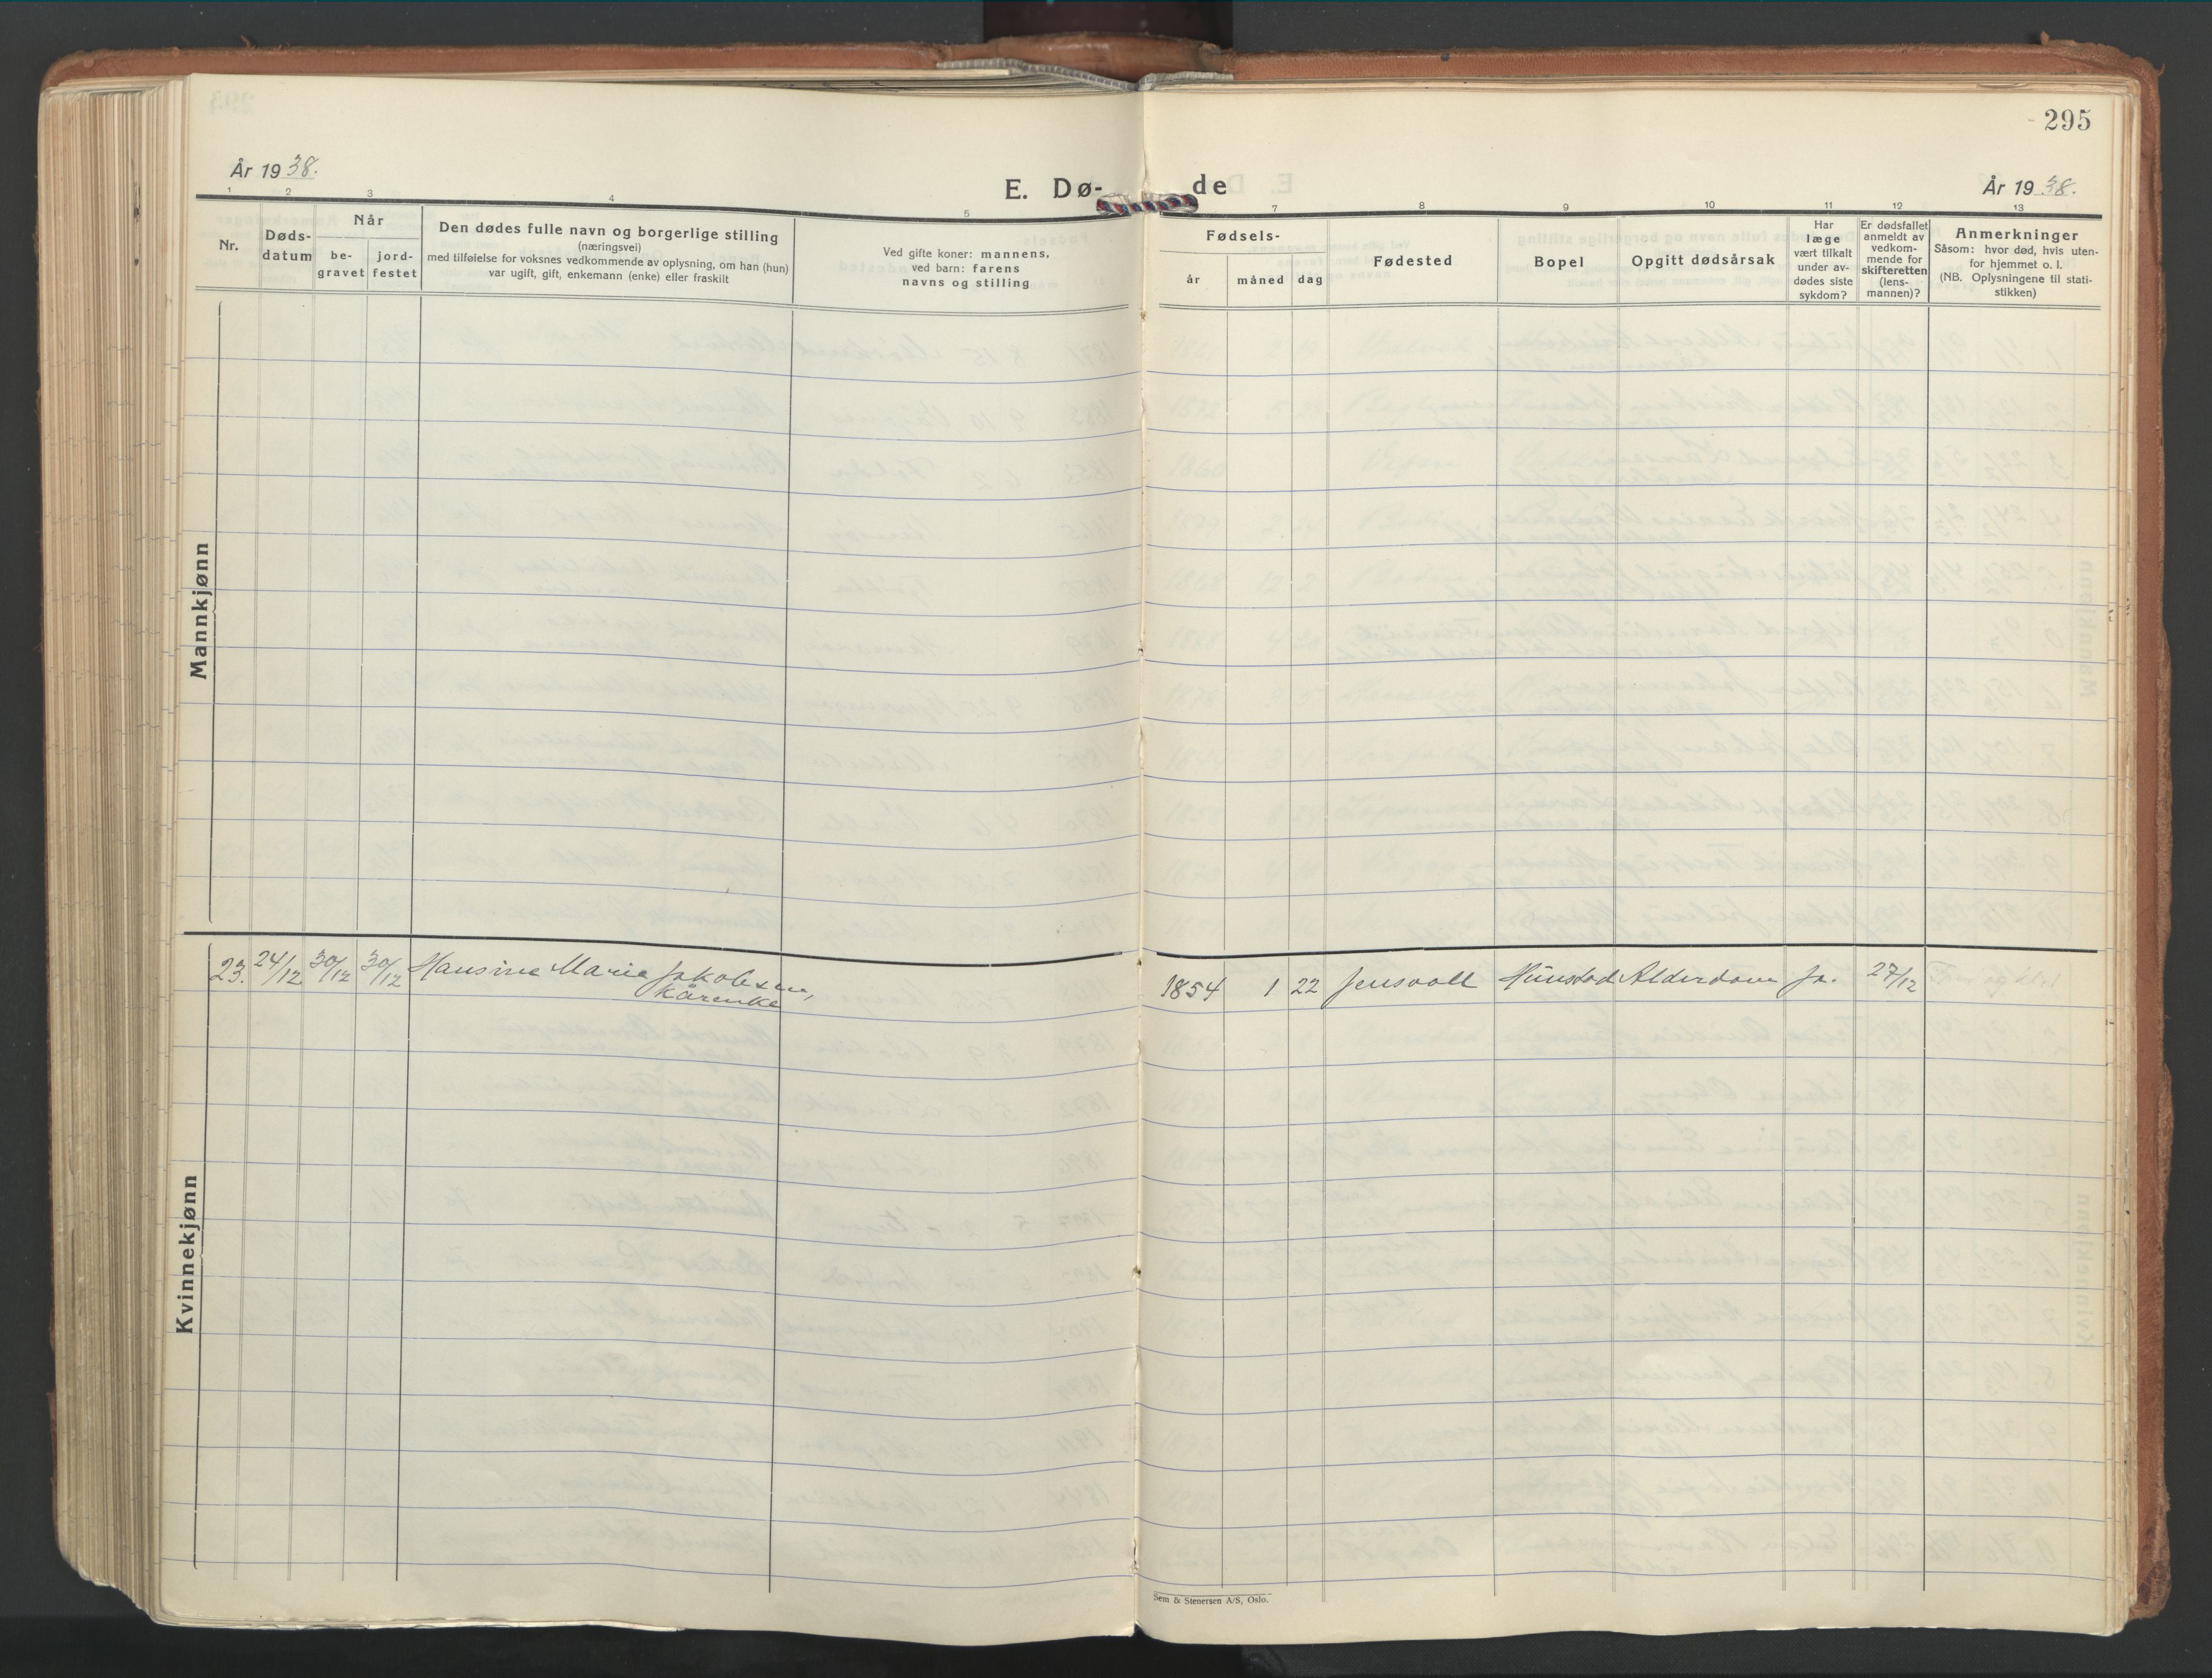 295
År 1938.
E. Dø-
de
År 1938.
1 2 3 4 5 7 8 9 10 11 12 13
Nr.
Døds-
datum
Når
be-
gravet
jord-
festet
Den dødes fulle navn og borgerlige stilling
(næringsvei)
med tilføielse for voksnes vedkommende av oplysning, om han (hun)
var ugift, gift, enkemann (enke) eller fraskilt
Ved gifte koner: mannens,
ved barn: farens
navns og stilling
Fødsels-
år måned dag
Fødested
Bopel
Opgitt dødsårsak
Har
læge
vært tilkalt
under av-
dødes siste
sykdom?
Er dødsfallet
anmeldt av
vedkom-
mende for
skifteretten
(lens-
mannen)?
Anmerkninger
Såsom: hvor død, hvis uten-
for hjemmet o. l.
(NB. Oplysningene til stati-
stikken)
Mannkjønn
Kvinnekjønn
23. 24/12 30/12 30/12 Hansine Marie Jakobsen,
kårenke
1854 1 22 Jensvoll Hunstad Alderdom Ja. 27/12
Sem & Stenersen A/S, Oslo.